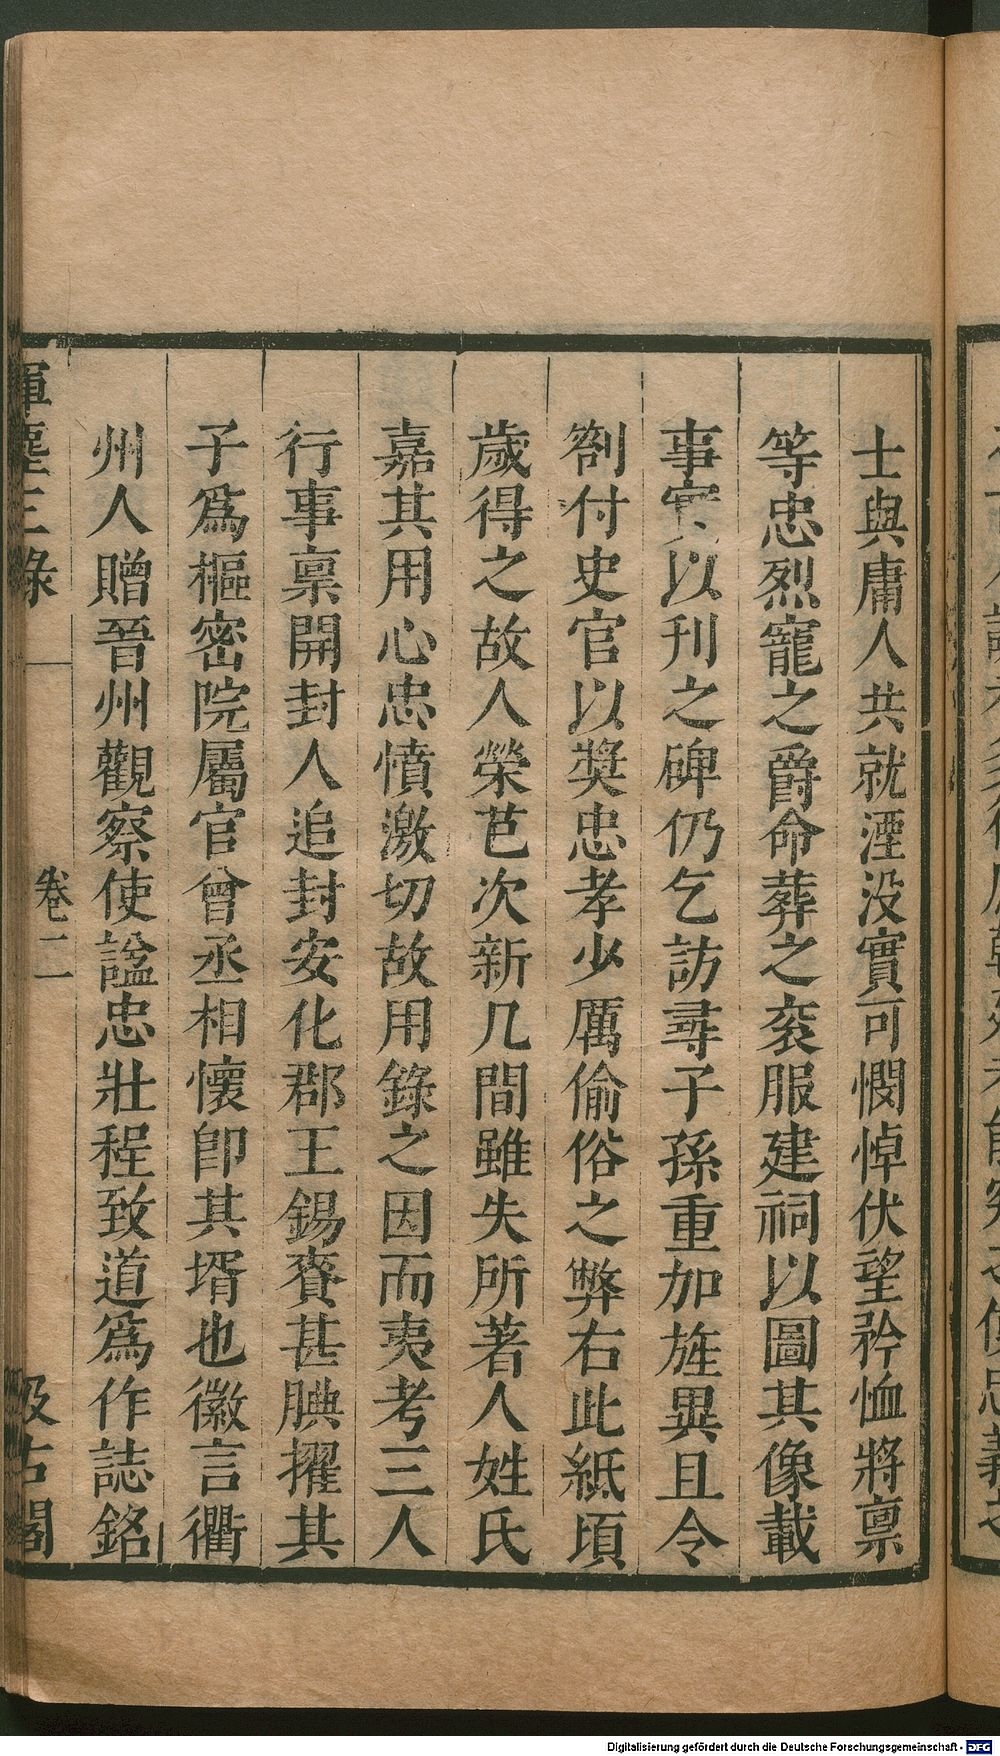 士與庸人共就湮没實可憫悼伏望矜恤將禀
等忠烈寵之爵命葬之衮服建祠以圖其像載
事實以刊之碑仍乞訪尋子孫重加旌異且令
劄付史官以奬忠孝少厲偷俗之弊右此紙頃
歲得之故人榮芑次新几間雖失所著人姓氏
嘉其用心忠憤激切故用錄之因而夷考三人
行事禀開封人追封安化郡王錫賚甚腆擢其
子爲樞密院屬官曾丞相懷卽其壻也徽言衢
州人贈晉州觀察使諡忠壯程致道爲作誌銘
揮麈三錄
卷二
汲古閣
Digitalisierung gefördert durch die Deutsche Forschungsgemeinschaft - DFG